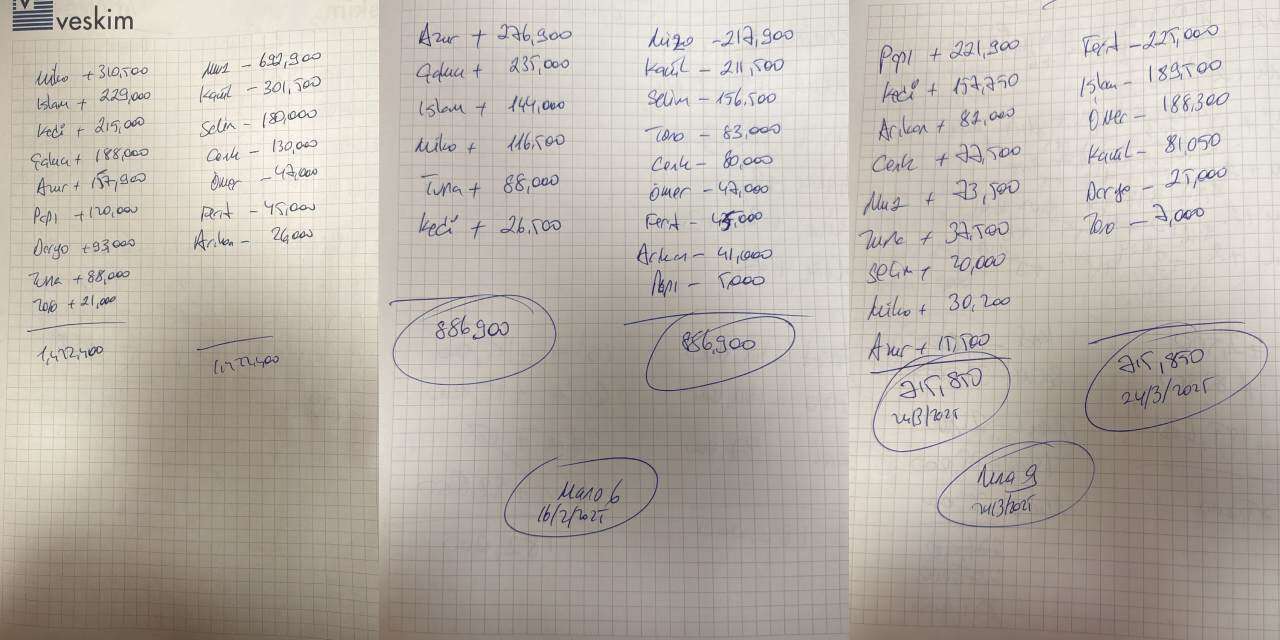 veskim
Miko + 310,500
Islam + 229,000
Kedi + 215,000
188,000
Azur + 157,900
Papi + 120,000
Dargo + 93,000
Tuna + 88,000
Toro + 21,000
1,422,400
Muz - 692,900
Kaül - 301,500
Selin - 180,000
Cenk - 130,000
Ömer - 47,000
Ferit - 45,000
Arikan - 26,000
1,422,400
Azur + 276,900
235,000
Islam + 144,000
Miko + 116,500
Tuna + 88,000
Kedi + 26,500
886,900
-217,900
Kaül - 211,500
Selim - 156,500
Toro - 83,000
Cenk - 80,000
Ömer - 47,000
Ferit - 45,000
Arikan - 41,000
Papi - 5,000
886,900
6
16/2/2025
Papi + 221,900
Kedi + 157,750
Arikan + 82,000
Cenk + 77,500
Muz + 73,500
Tuna + 37,500
Selim + 20,000
Miko + 30,200
Azur + 15,500
715,850
24/3/2025
Ferit - 225,000
Islam - 189,500
Ömer - 188,300
Kaül - 81,050
Dargo - 25,000
Toro - 7,000
715,850
24/3/2025
9
24/3/2025